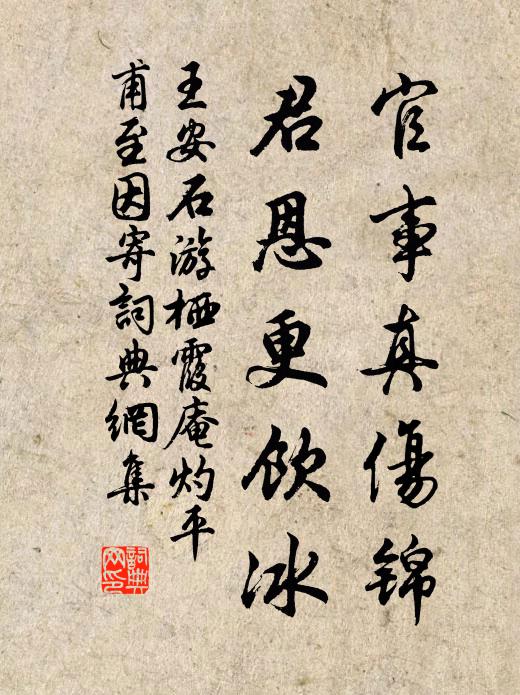 官事真傷錦
君恩更飲冰
王安石游栖霞庵灼平
甫至因寄詞典網集
詞典網印